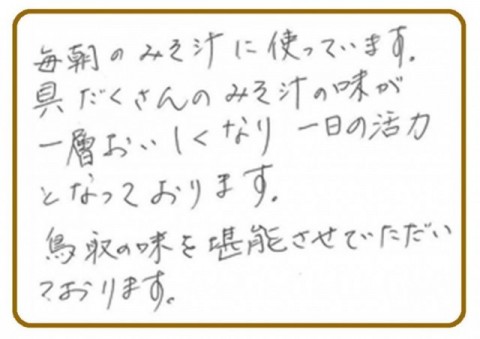 毎朝のみそ汁に使っています。
具だくさんのみそ汁の味が
一層おいしくなり 一日の活力
となっております。
鳥取の味を堪能させていただい
ております。